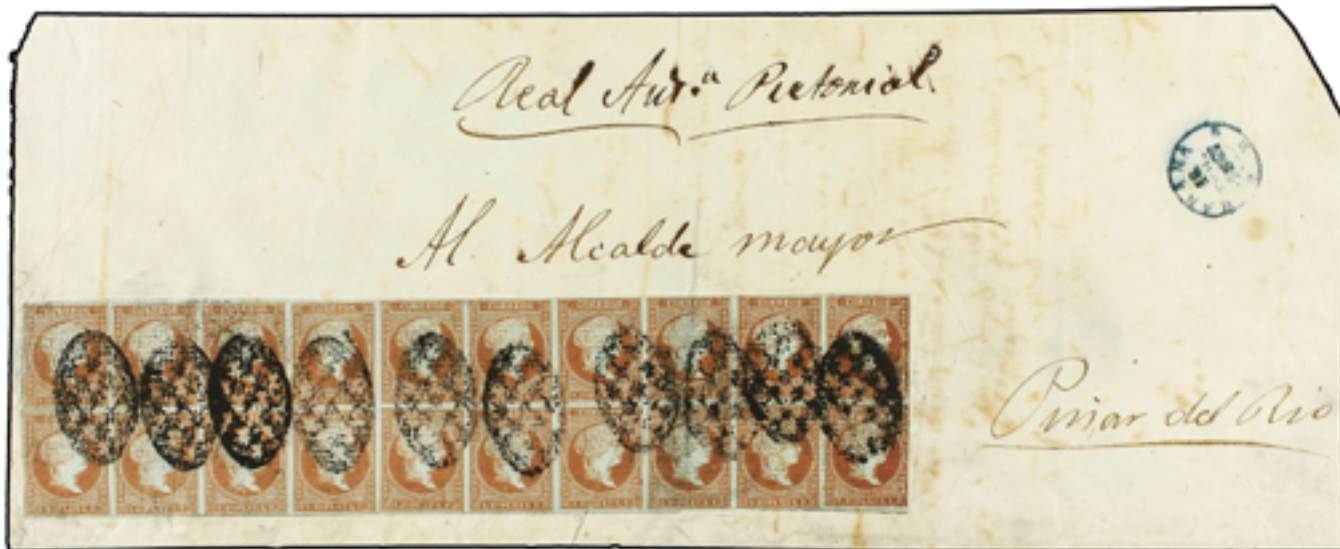 Real Aud.ª Pretorial.
Al. Alcalde mayor
Pinar del Rio